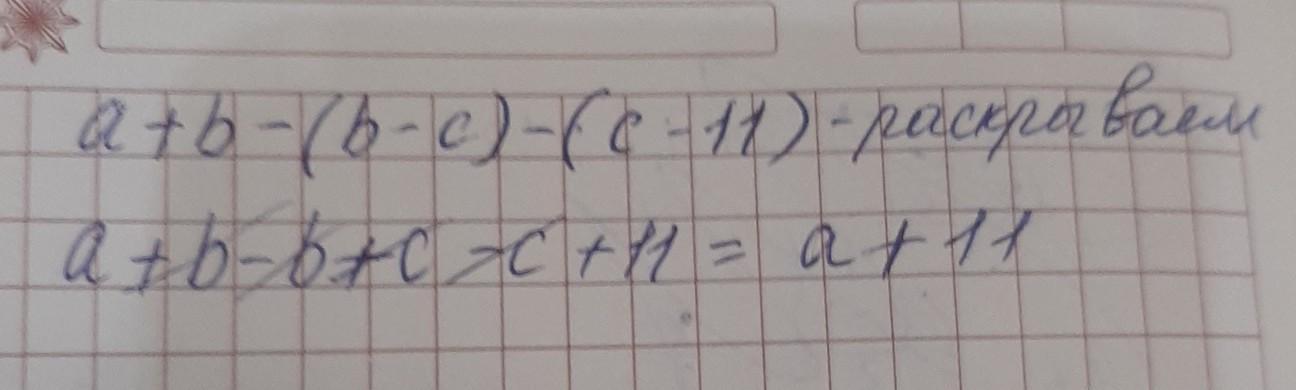 a + b - (b - c) - (c - 11) - раскрываем
a + b - b + c - c + 11 = a + 11